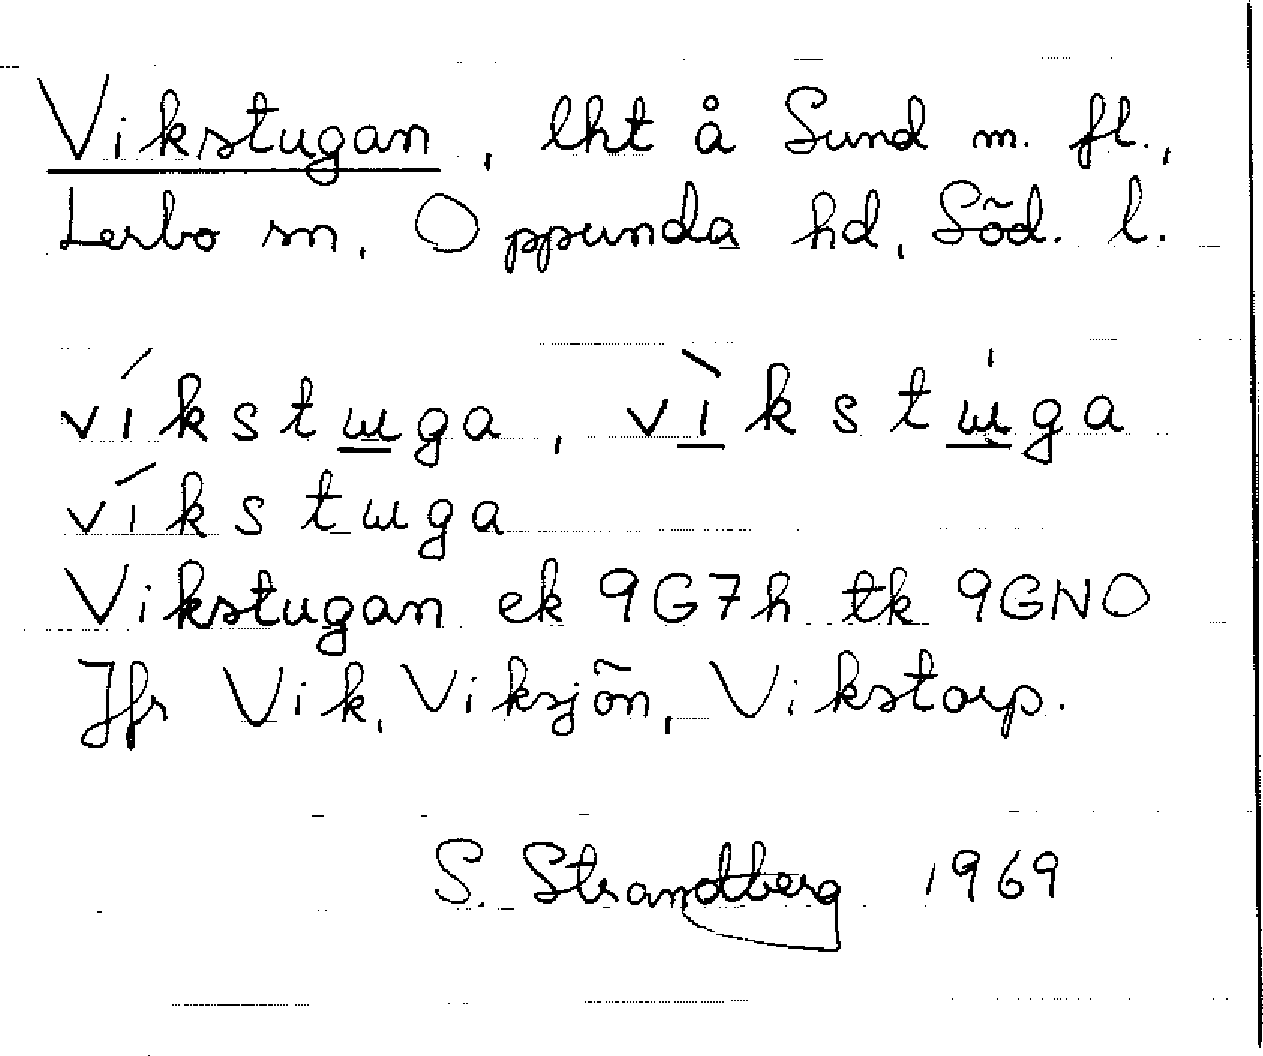 Vikstugan, lht å Sund m. fl.,
Lerbo sn, Oppunda hd, Söd. l.
víkstɯga, vìkstɯ̍ga
víkstɯga
Vikstugan ek 9G7h tk 9GNO
Jfr Vik, Viksjön, Vikstorp.
S. Strandberg 1969